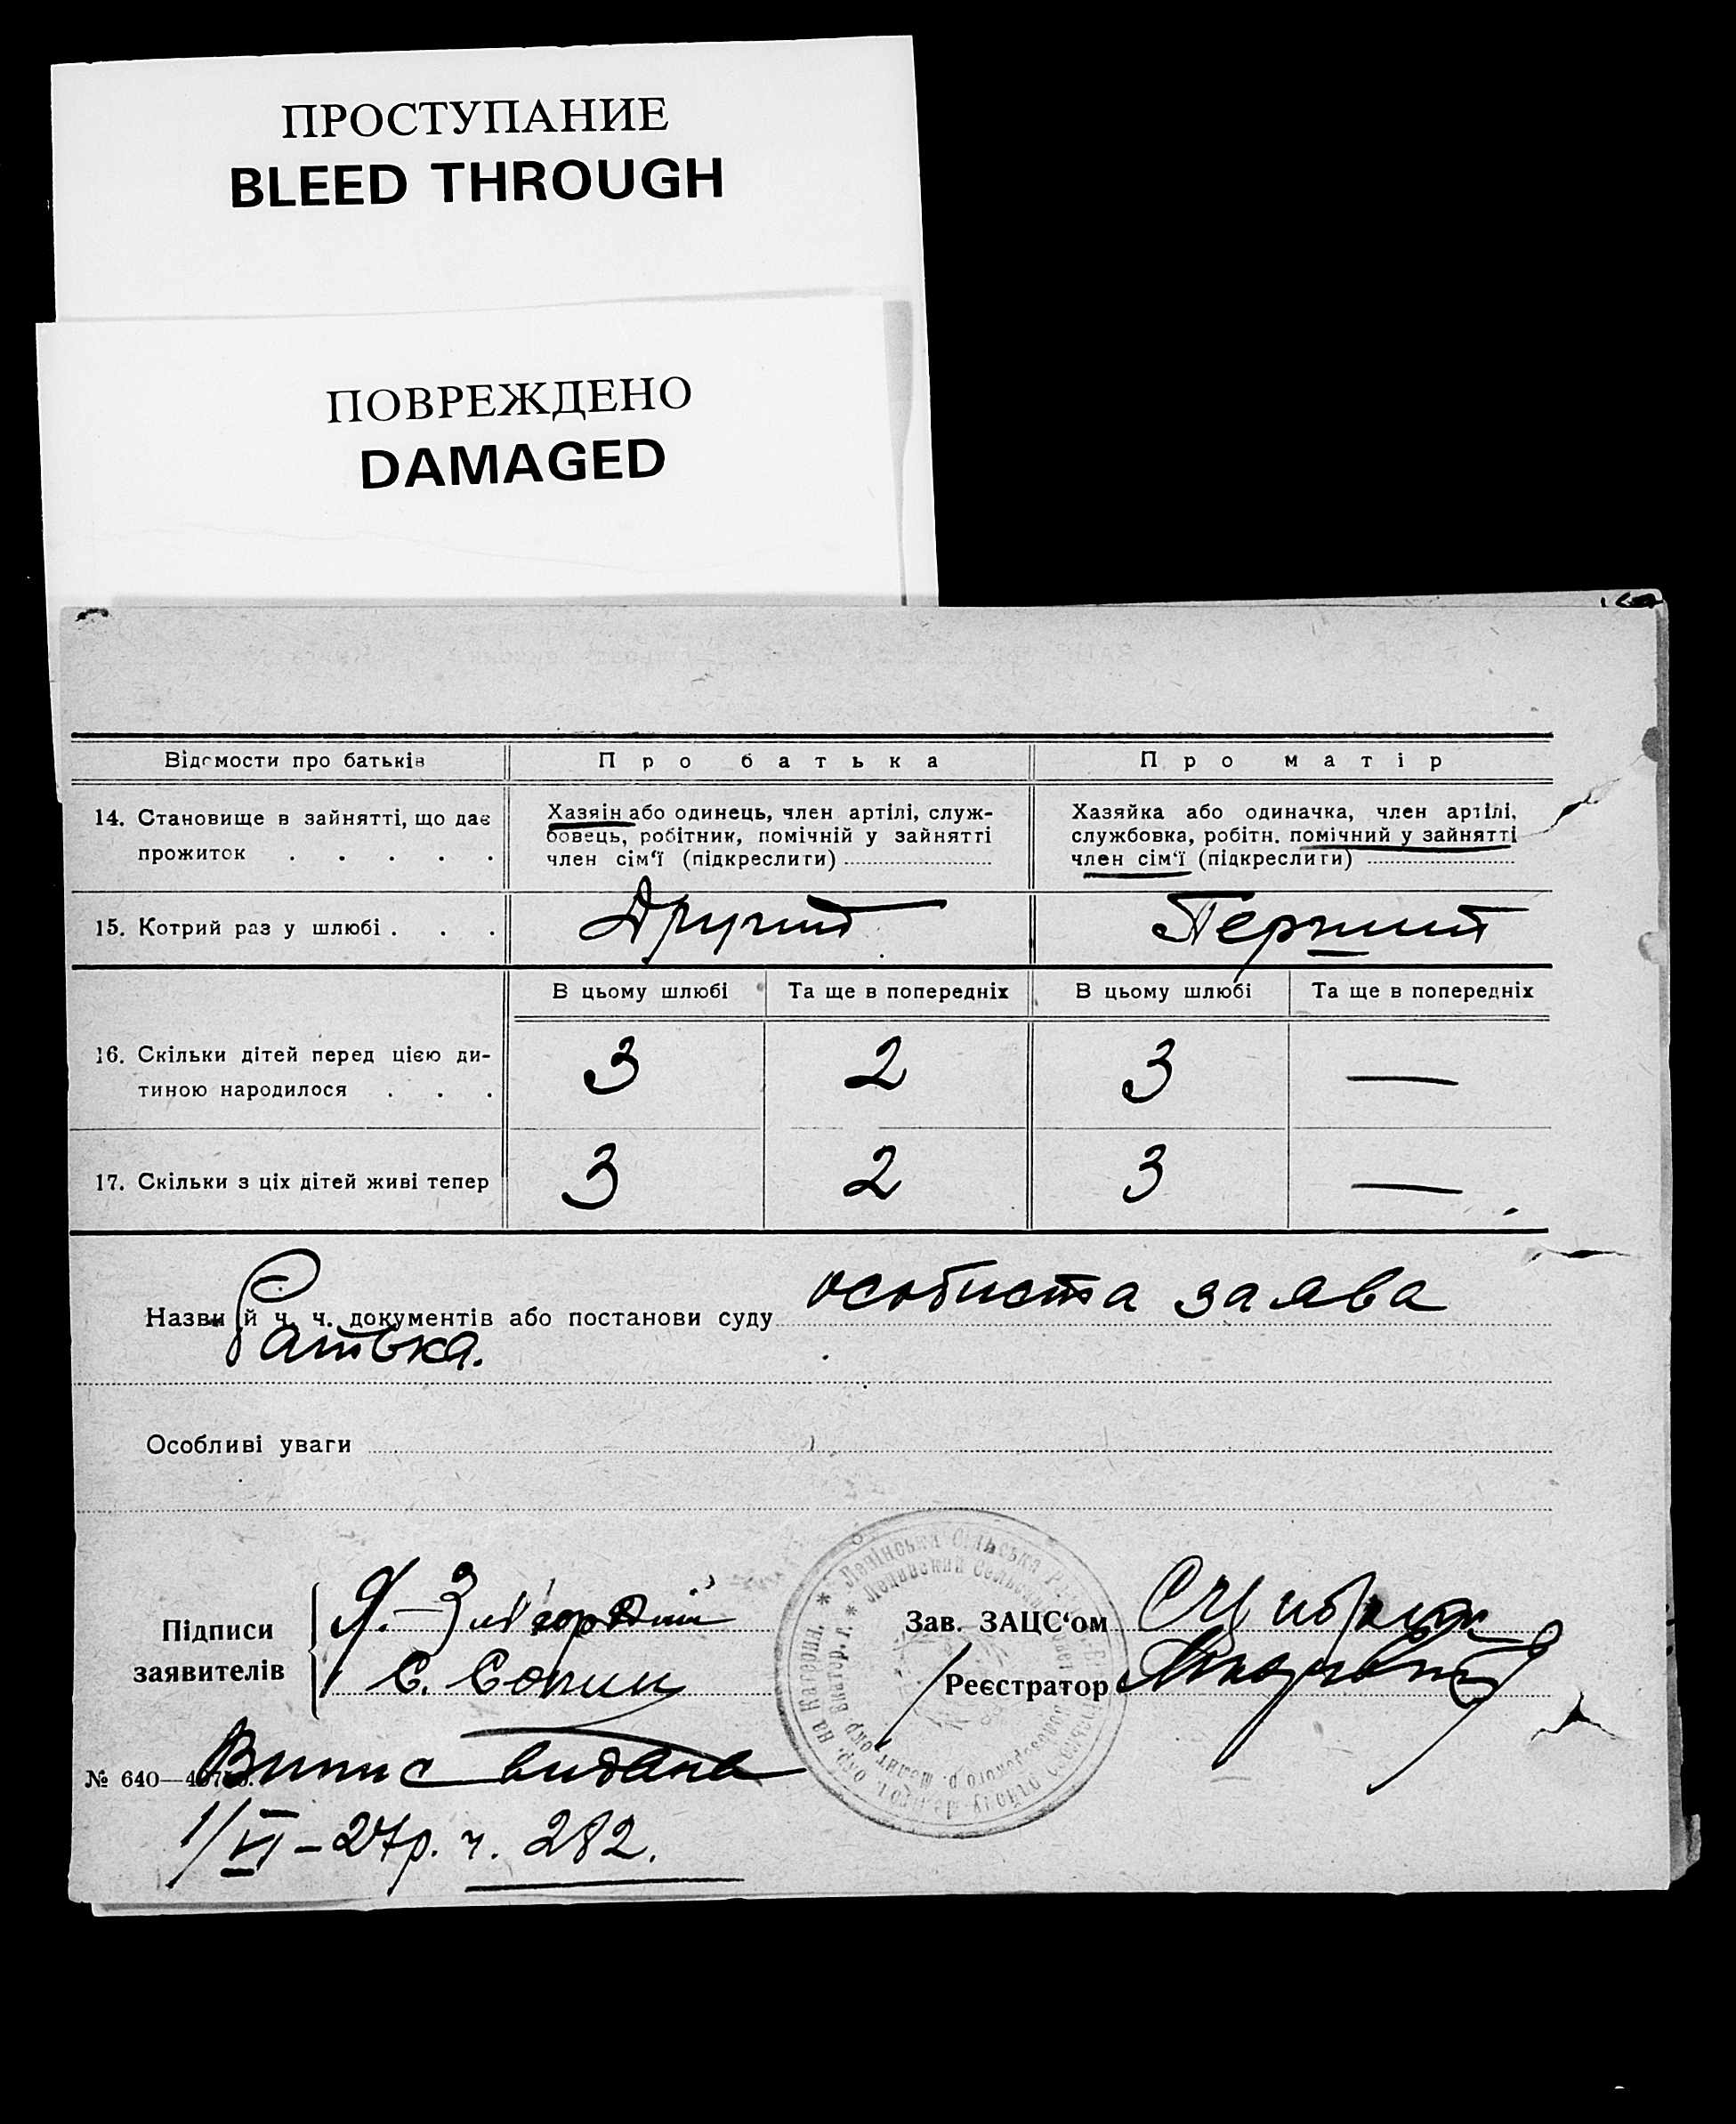 ПРОСТУПАНИЕ
BLEED THROUGH
ПОВРЕЖДЕНО
DAMAGED
Відомости про батьків
Про батька
Про матір
14. Становище в зайнятті, що дає
прожиток . . . . .
Хазяін або одинець, член артілі, служ-
бовець, робітник, помічній у зайнятті
член сім'ї (підкреслити)
Хазяйка або одиначка, член артілі,
службовка, робітн. помічний у зайнятті
член сім'ї (підкреслити)
15. Котрий раз у шлюбі . . .
Другий
Перший
В цьому шлюбі
Та ще в попередніх
В цьому шлюбі
Та ще в попередніх
16. Скільки дітей перед цією ди-
тиною народилося . . .
3
2
3
—
17. Скільки з ціх дітей живі тепер
3
2
3
—
Назви й ч. ч. документів або постанови суду особиста заява
батька.
Особливі уваги
Підписи
заявителів
Я.
С.
Зав. ЗАЦС'ом
Реєстратор
№ 640—
Випис видано
1/VI – 27р. ч. 282.